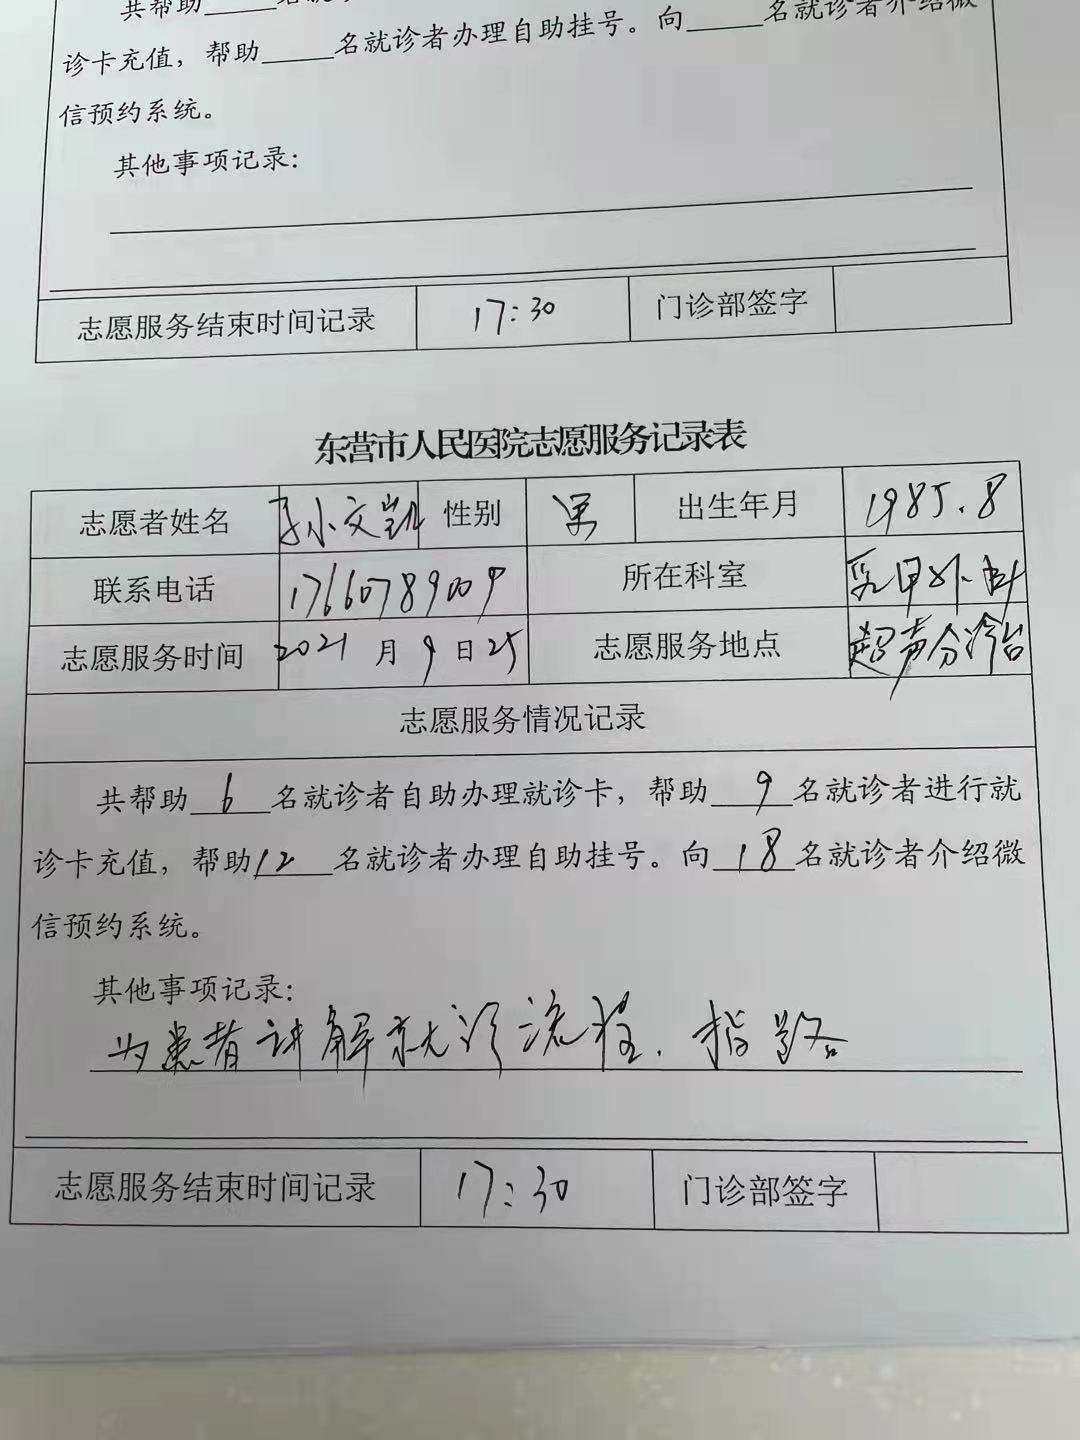 共帮助_____名就
诊卡充值，帮助_____名就诊者办理自助挂号。向_____名就诊者介绍微
信预约系统。
其他事项记录：
志愿服务结束时间记录 17:30 门诊部签字
东营市人民医院志愿服务记录表
志愿者姓名 孙文凯 性别 男 出生年月 1985.8
联系电话 17660789009 所在科室 乳甲外科
志愿服务时间 2021 月 9 日 25 志愿服务地点 超声分诊台
志愿服务情况记录
共帮助 6 名就诊者自助办理就诊卡，帮助 9 名就诊者进行就
诊卡充值，帮助 12 名就诊者办理自助挂号。向 18 名就诊者介绍微
信预约系统。
其他事项记录：
为患者讲解就诊流程．指路
志愿服务结束时间记录 17:30 门诊部签字